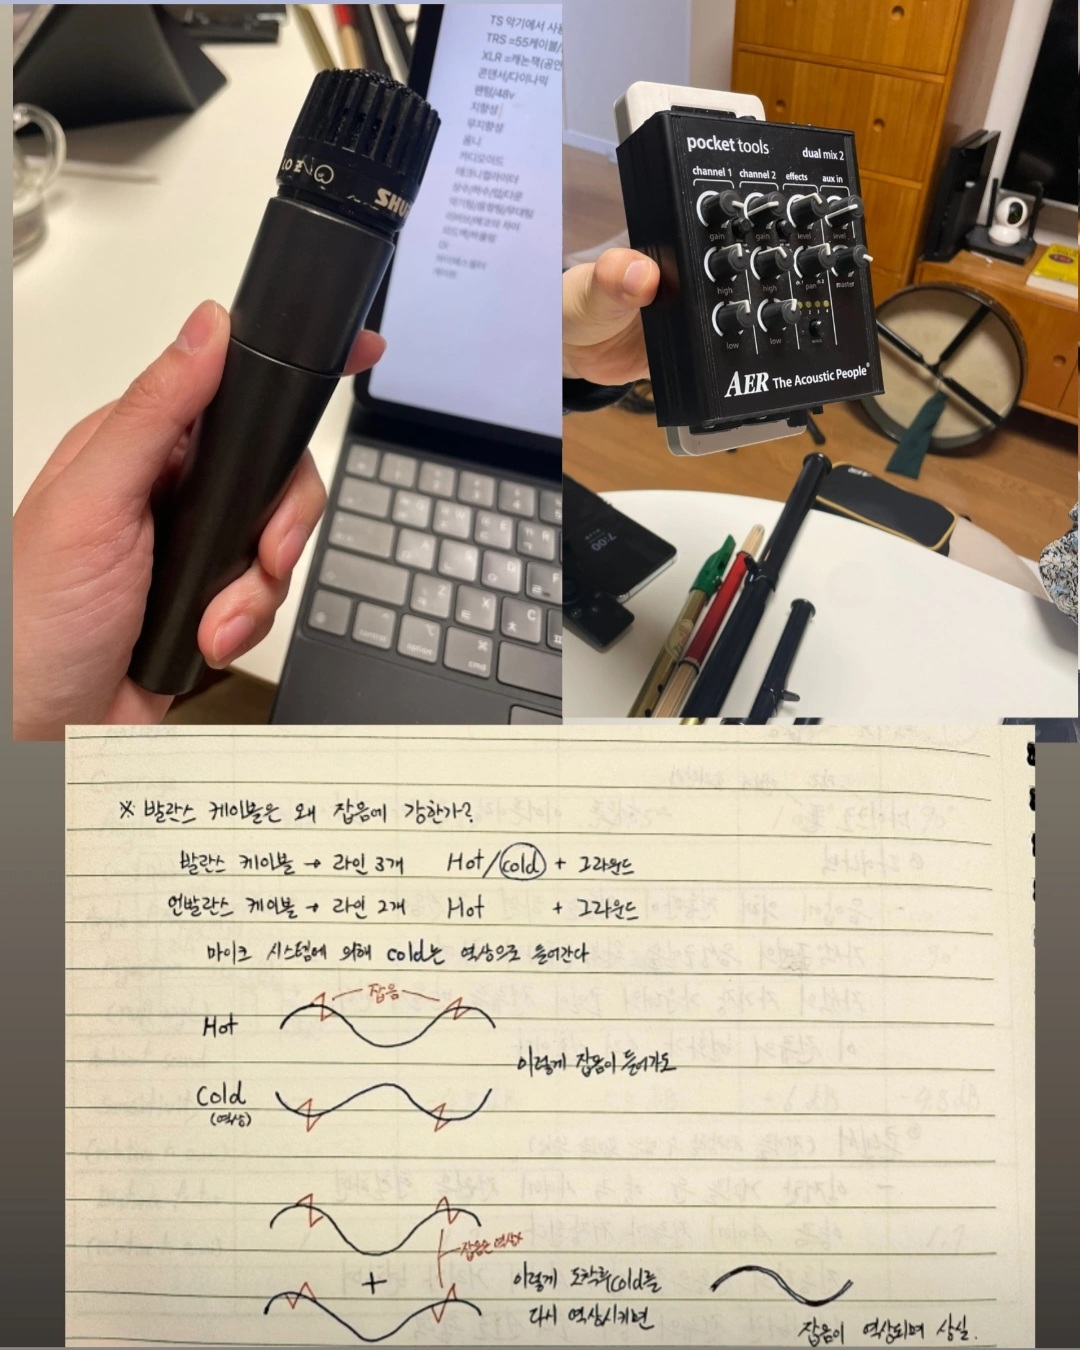 TS 악기에서 사용
TRS =55케이블/
XLR =캐논잭(공연
콘덴서/다이나믹
팬텀/48v
지향성
무지향성
옴니
카디오이드
SHU
control
option
cmd
pocket tools
dual mix 2
channel 1 channel 2 effects aux in
gain gain level level
high high pan master
low low
AER The Acoustic People
7:00
※ 발란스 케이블은 왜 잡음에 강한가?
발란스 케이블 → 라인 3개 Hot/cold + 그라운드
언발란스 케이블 → 라인 2개 Hot + 그라운드
마이크 시스템에 의해 cold는 역상으로 들어간다
잡음
Hot
이렇게 잡음이 들어가도
Cold
(역상)
잡음은 역상
+
이렇게 도착후 cold를
다시 역상시키면
잡음이 역상되며 상실.